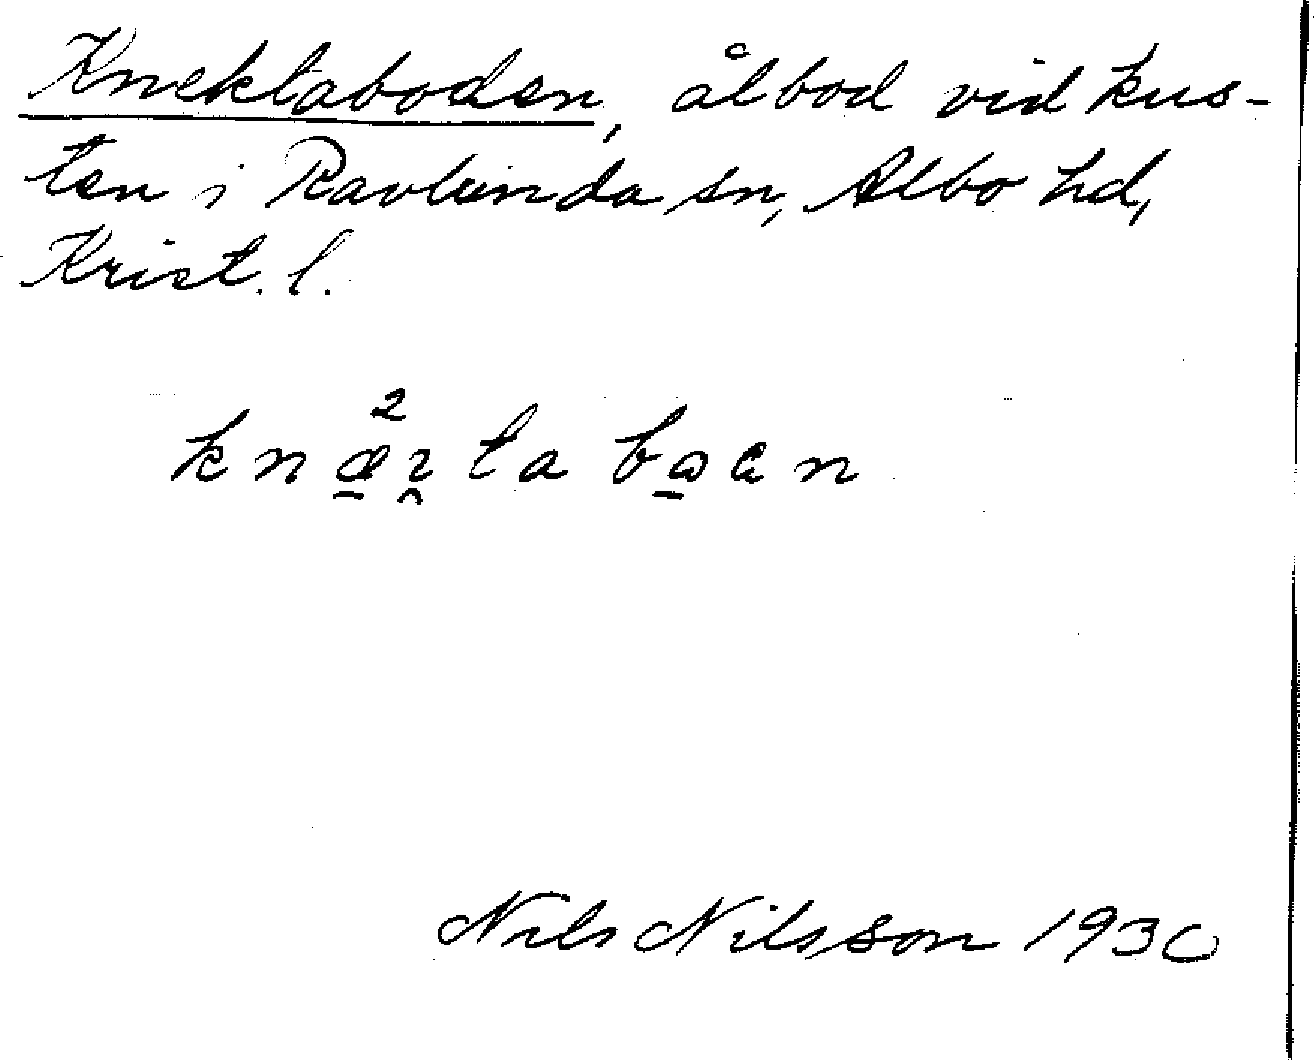 Knektaboden, ålbod vid kus-
ten i Ravlunda sn, Albo hd,
Krist. l.
Nils Nilsson 1930